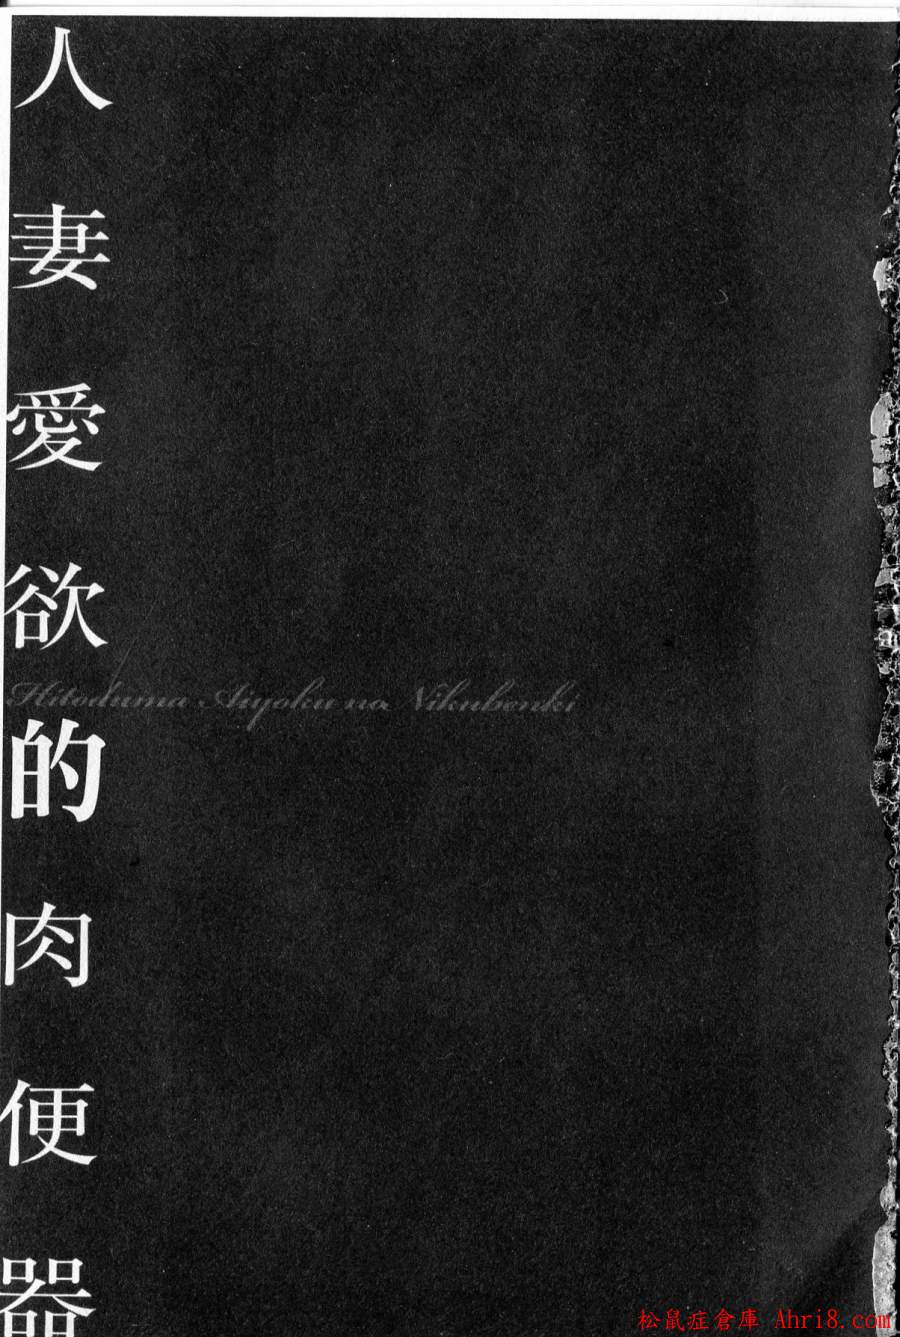 人妻愛欲的肉便器
Hitoduma Aiyoku no Nikubenki
松鼠症倉庫 Ahri8.com